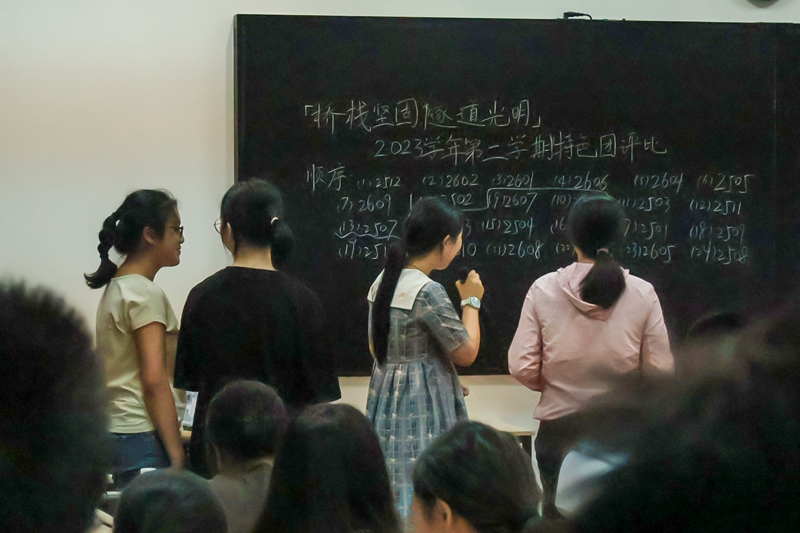 「桥栈坚固隧道光明」
2023学年第二学期特色团评比
顺序: (1)2512 (2)2602 (3)2601 (4)2606 (5)2604 (6)2505
(7)2609 2502 (9)2607 (10) 2503 (12)2511
(13)2507 (15)2504 2507 (18)2509
(19)251 10 (21)2608 (22) (23)2605 (24)2508